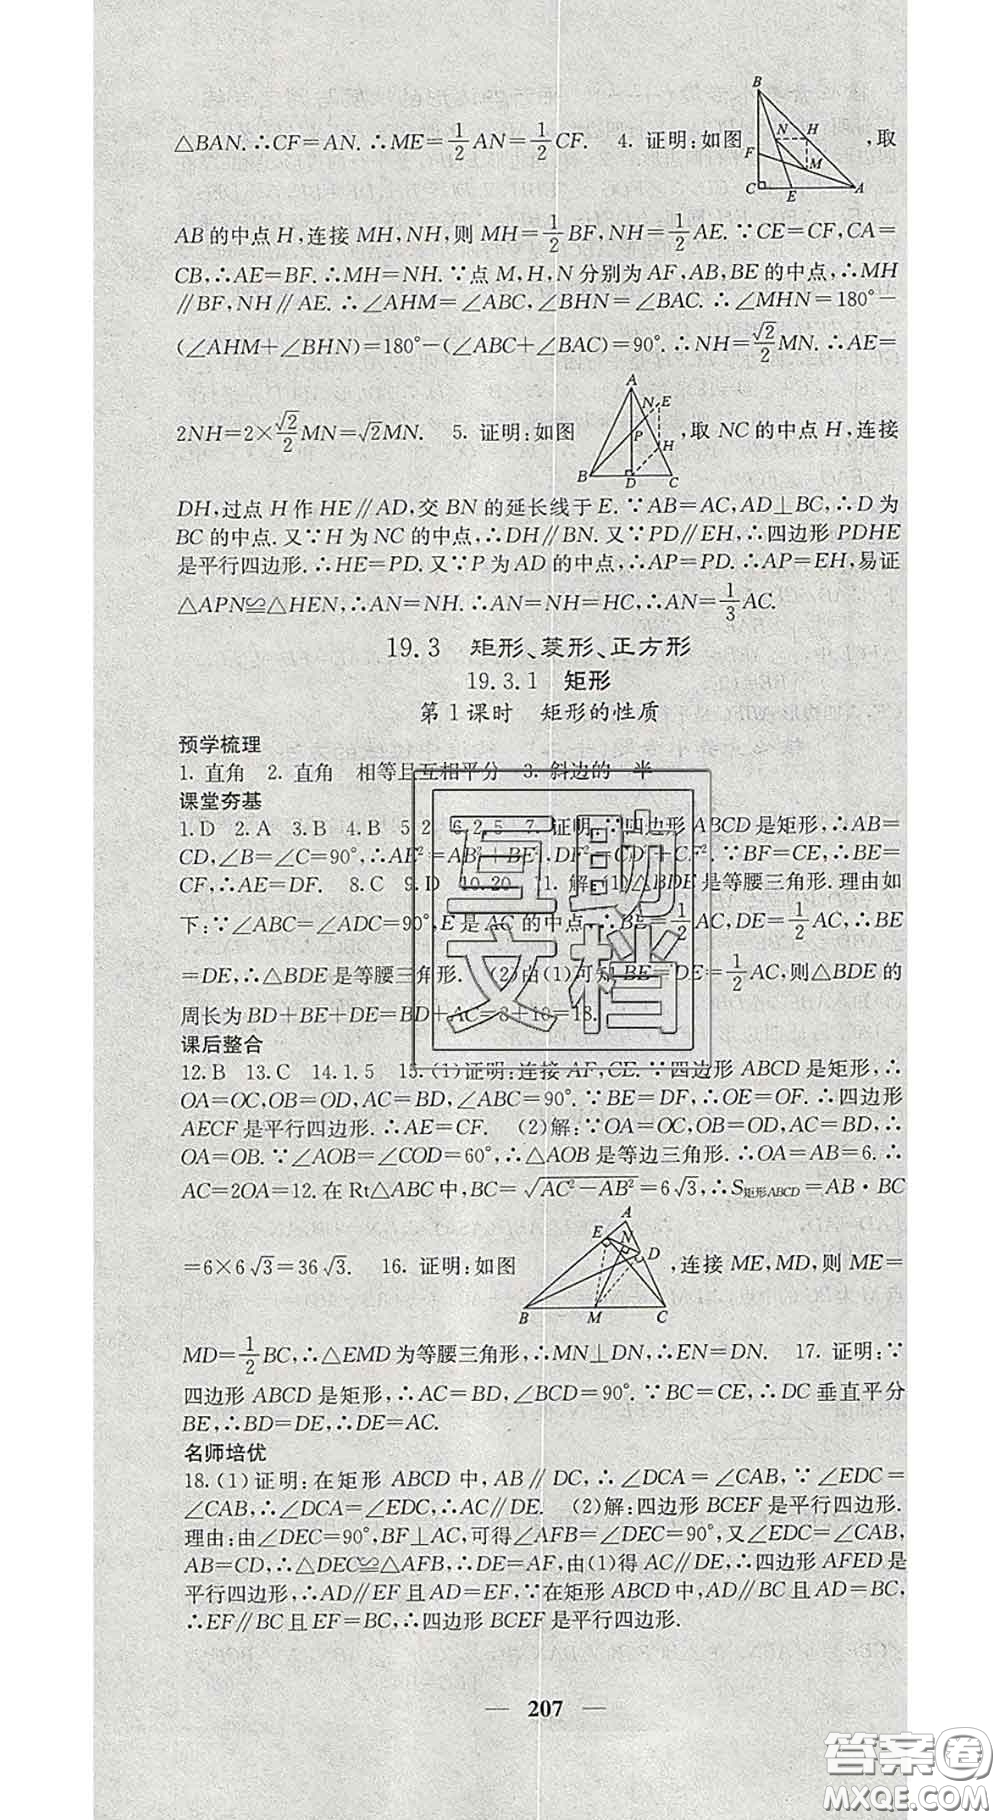 △BAN.∴CF=AN.∴ME=1/2AN=1/2CF. 4. 证明:如图 ,取
AB的中点H,连接MH,NH,则MH=1/2BF,NH=1/2AE.∵CE=CF,CA=
CB,∴AE=BF.∴MH=NH.∵点M,H,N分别为AF,AB,BE的中点,∴MH
∥BF,NH∥AE.∴∠AHM=∠ABC,∠BHN=∠BAC.∴∠MHN=180°−
(∠AHM+∠BHN)=180°−(∠ABC+∠BAC)=90°.∴NH=√2/2MN.∴AE=
2NH=2×√2/2MN=√2MN. 5. 证明:如图 ,取NC的中点H,连接
DH,过点H作HE∥AD,交BN的延长线于E.∵AB=AC,AD⊥BC,∴D为
BC的中点.又∵H为NC的中点,∴DH∥BN.又∵PD∥EH,∴四边形PDHE
是平行四边形.∴HE=PD.又∵P为AD的中点,∴AP=PD.∴AP=EH,易证
△APN≌△HEN,∴AN=NH.∴AN=NH=HC,∴AN=1/3AC.
19.3 矩形、菱形、正方形
19.3.1 矩形
第1课时 矩形的性质
预学梳理
1. 直角 2. 直角 相等且互相平分 3. 斜边的一半
课堂夯基
1.D 2.A 3.B 4.B 5.2 6.2.5 7. 证明:∵四边形ABCD是矩形,∴AB=
CD,∠B=∠C=90°,∴AE²=AB²+BE²,DF²=CD²+CF².∵BF=CE,∴BE=
CF,∴AE=DF. 8.C 9.D 10.20 11. 解:(1)△BDE是等腰三角形.理由如
下:∵∠ABC=∠ADC=90°,E是AC的中点,∴BE=1/2AC,DE=1/2AC,∴BE
=DE,∴△BDE是等腰三角形. (2)由(1)可知,BE=DE=1/2AC,则△BDE的
周长为BD+BE+DE=BD+AC=8+10=18.
课后整合
12.B 13.C 14.1.5 15.(1)证明:连接AF,CE.∵四边形ABCD是矩形,∴
OA=OC,OB=OD,AC=BD,∠ABC=90°.∵BE=DF,∴OE=OF.∴四边形
AECF是平行四边形.∴AE=CF. (2)解:∵OA=OC,OB=OD,AC=BD,∴
OA=OB.∵∠AOB=∠COD=60°,∴△AOB是等边三角形.∴OA=AB=6.∴
AC=2OA=12.在Rt△ABC中,BC=√(AC²−AB²)=6√3,∴S矩形ABCD=AB·BC
=6×6√3=36√3. 16. 证明:如图 ,连接ME,MD,则ME=
MD=1/2BC,∴△EMD为等腰三角形,∴MN⊥DN,∴EN=DN. 17. 证明:∵
四边形ABCD是矩形,∴AC=BD,∠BCD=90°.∵BC=CE,∴DC垂直平分
BE,∴BD=DE,∴DE=AC.
名师培优
18.(1)证明:在矩形ABCD中,AB∥DC,∴∠DCA=∠CAB,∵∠EDC=
∠CAB,∴∠DCA=∠EDC,∴AC∥DE. (2)解:四边形BCEF是平行四边形.
理由:由∠DEC=90°,BF⊥AC,可得∠AFB=∠DEC=90°,又∠EDC=∠CAB,
AB=CD,∴△DEC≌△AFB,∴DE=AF,由(1)得AC∥DE,∴四边形AFED是
平行四边形,∴AD∥EF且AD=EF,∵在矩形ABCD中,AD∥BC且AD=BC,
∴EF∥BC且EF=BC,∴四边形BCEF是平行四边形.
— 207 —
互助文档
答案圈
MXQE.COM